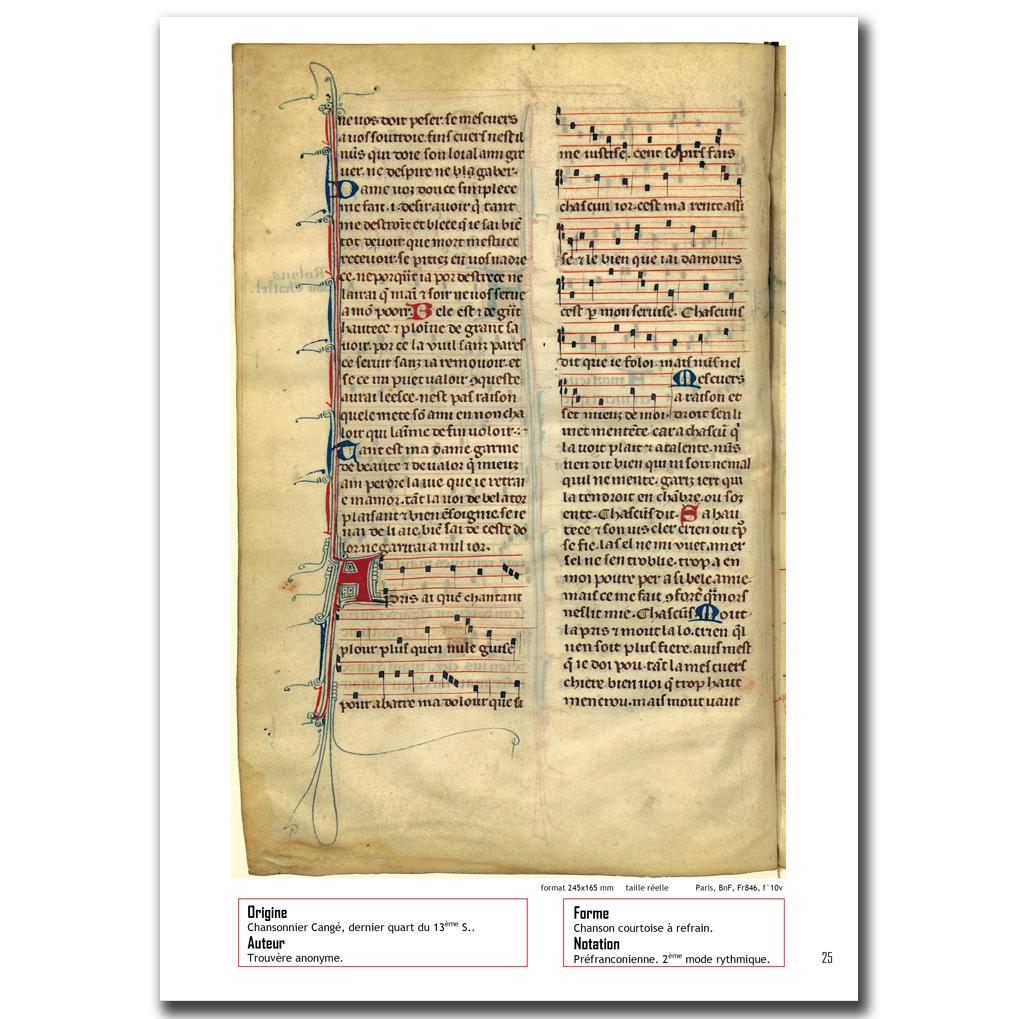 ne vos doit peser. se mes cuers
a vos sout roie. fins cuers nest il
nuis qui voie son loial ami gre
uer. ne despire ne blagaber.
Dame uoz douce simplece
me fait .i. desir avoir q̃ tant
me destroit et blece q̃ ie sai biẽ
tot de uoir. que mort mestuet
receuoir. se pitiez en vos nadre
ce. ne porq̃nt ia por destrece ne
lairai q̃ mai ⁊ soir ne vos serue
a mõ pooir. Bele est ⁊ de gñt
hautece ⁊ ploine de grant sa
uoir. por ce la vuil sanz pares
ce seruir sanz ia remouoir. et
se ce mi puet ualoir ꝯqueste
aurai leesce. nest pas raison
quele mete sõ ami en non cha
loir qui laime de fin uoloir.
Tant est ma dame garnie
de beaute ⁊ de ualor q̃ mieuz
am perdre la uie que ie retrai
e mamor. tãt la uoi de bel ator
plaisant ⁊ bien ẽsoignie. se ie
nai de li aie. biẽ sai de ceste do
lor ne garirai a nul ior.
Apris ai quẽ chantant
plour plus quen nule guise
pour abatre ma dolour que si
me iustise. cent sopirs fais
chascun ior. cest ma rente assi
se ⁊ le bien que iai damours
cest p mon seruise. Chascuns
dit que ie foloi. mais nũs nel
Mes cuers
a raison et
set mieuz de moi. droit sen li
met mentẽte. car a chascũ q̃
la voit plait ⁊ atalente. nũs
nen dit bien qui ni soit ne mal
qui ne mente. gariz iert qui
la tendroit en chãbre. ou soz
ente. Chascũs dit. Sa hau
tece ⁊ son vis cler
se fie. las el ne mi vuet amer
sel ne sen troblie. trop a en
moi poure per a si bele amie.
mais ce me fait ꝯforẽ q̃mors
neslit mie. Chascũs Mout
la pris ⁊ mout la lo. crien q̃l
nen soit plus fiere. auis mest
q̃ ie doi pou. tãt la mes cuers
chiere. bien uoi q̃ trop haut
men crou. mais mout vaut
format 245x165 mm taille réelle Paris, BnF, Fr846, f°10v
Origine
Chansonnier Cangé, dernier quart du 13ème S..
Auteur
Trouvère anonyme.
Forme
Chanson courtoise à refrain.
Notation
Préfranconienne. 2ème mode rythmique.
25